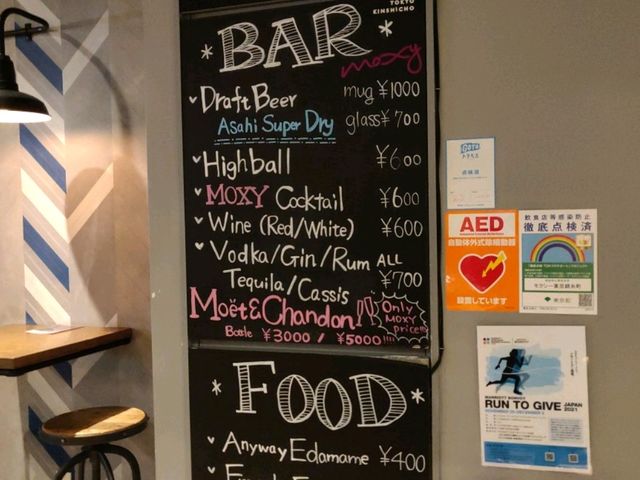 TOKYO
KINSHICHO
BAR
moxy
Draft Beer mug ¥1000
Asahi Super Dry glass ¥700
Highball ¥600
MOXY Cocktail ¥600
Wine (Red/White) ¥600
Vodka/Gin/Rum ALL
Tequila/Cassis ¥700
Moët&Chandon!!
Only
MOXY
price!!
Bottle ¥3000 / ¥5000!!!!
FOOD
Anyway Edamame ¥400
点検済
AED
自動体外式除細動器
設置しています
飲食店等感染防止
徹底点検済
モクシー東京錦糸町
東京都
RUN TO GIVE JAPAN
2021